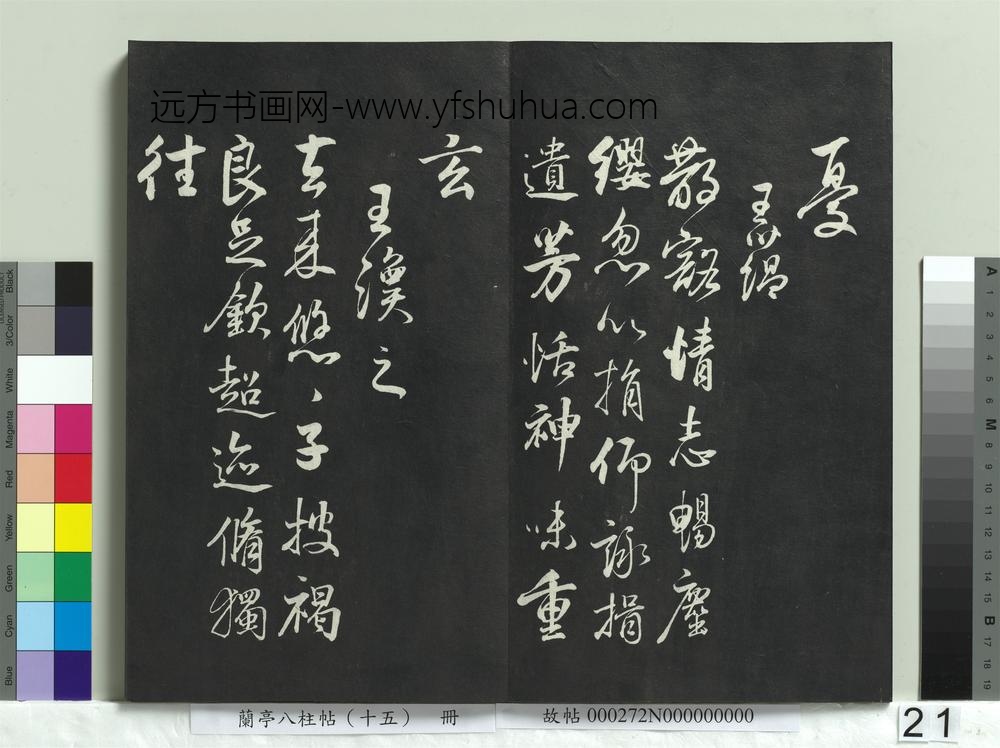 远方书画网-www.yfshuhua.com
憂
王蘊
散豁情志暢塵
纓忽以捐仰詠挹
遺芳怡神味重
玄
王渙之
去来悠〻子披褐
良足欽超迹脩獨
往
蘭亭八柱帖（十五） 冊
故帖 000272N000000000
21
Black
3/Color
White
Magenta
Red
Yellow
Green
Cyan
Blue
A
1
2
3
4
5
6
M
8
9
10
11
12
13
14
15
B
17
18
19